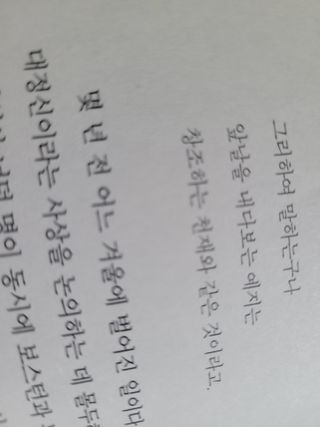 그리하여 말하는구나
앞날을 내다보는 예지는
창조하는 천재와 같은 것이라고.
몇 년 전 어느 겨울에 벌어진 일이다
대정신이라는 사상을 논의하는 데 몰두
명이 동시에 보스턴과